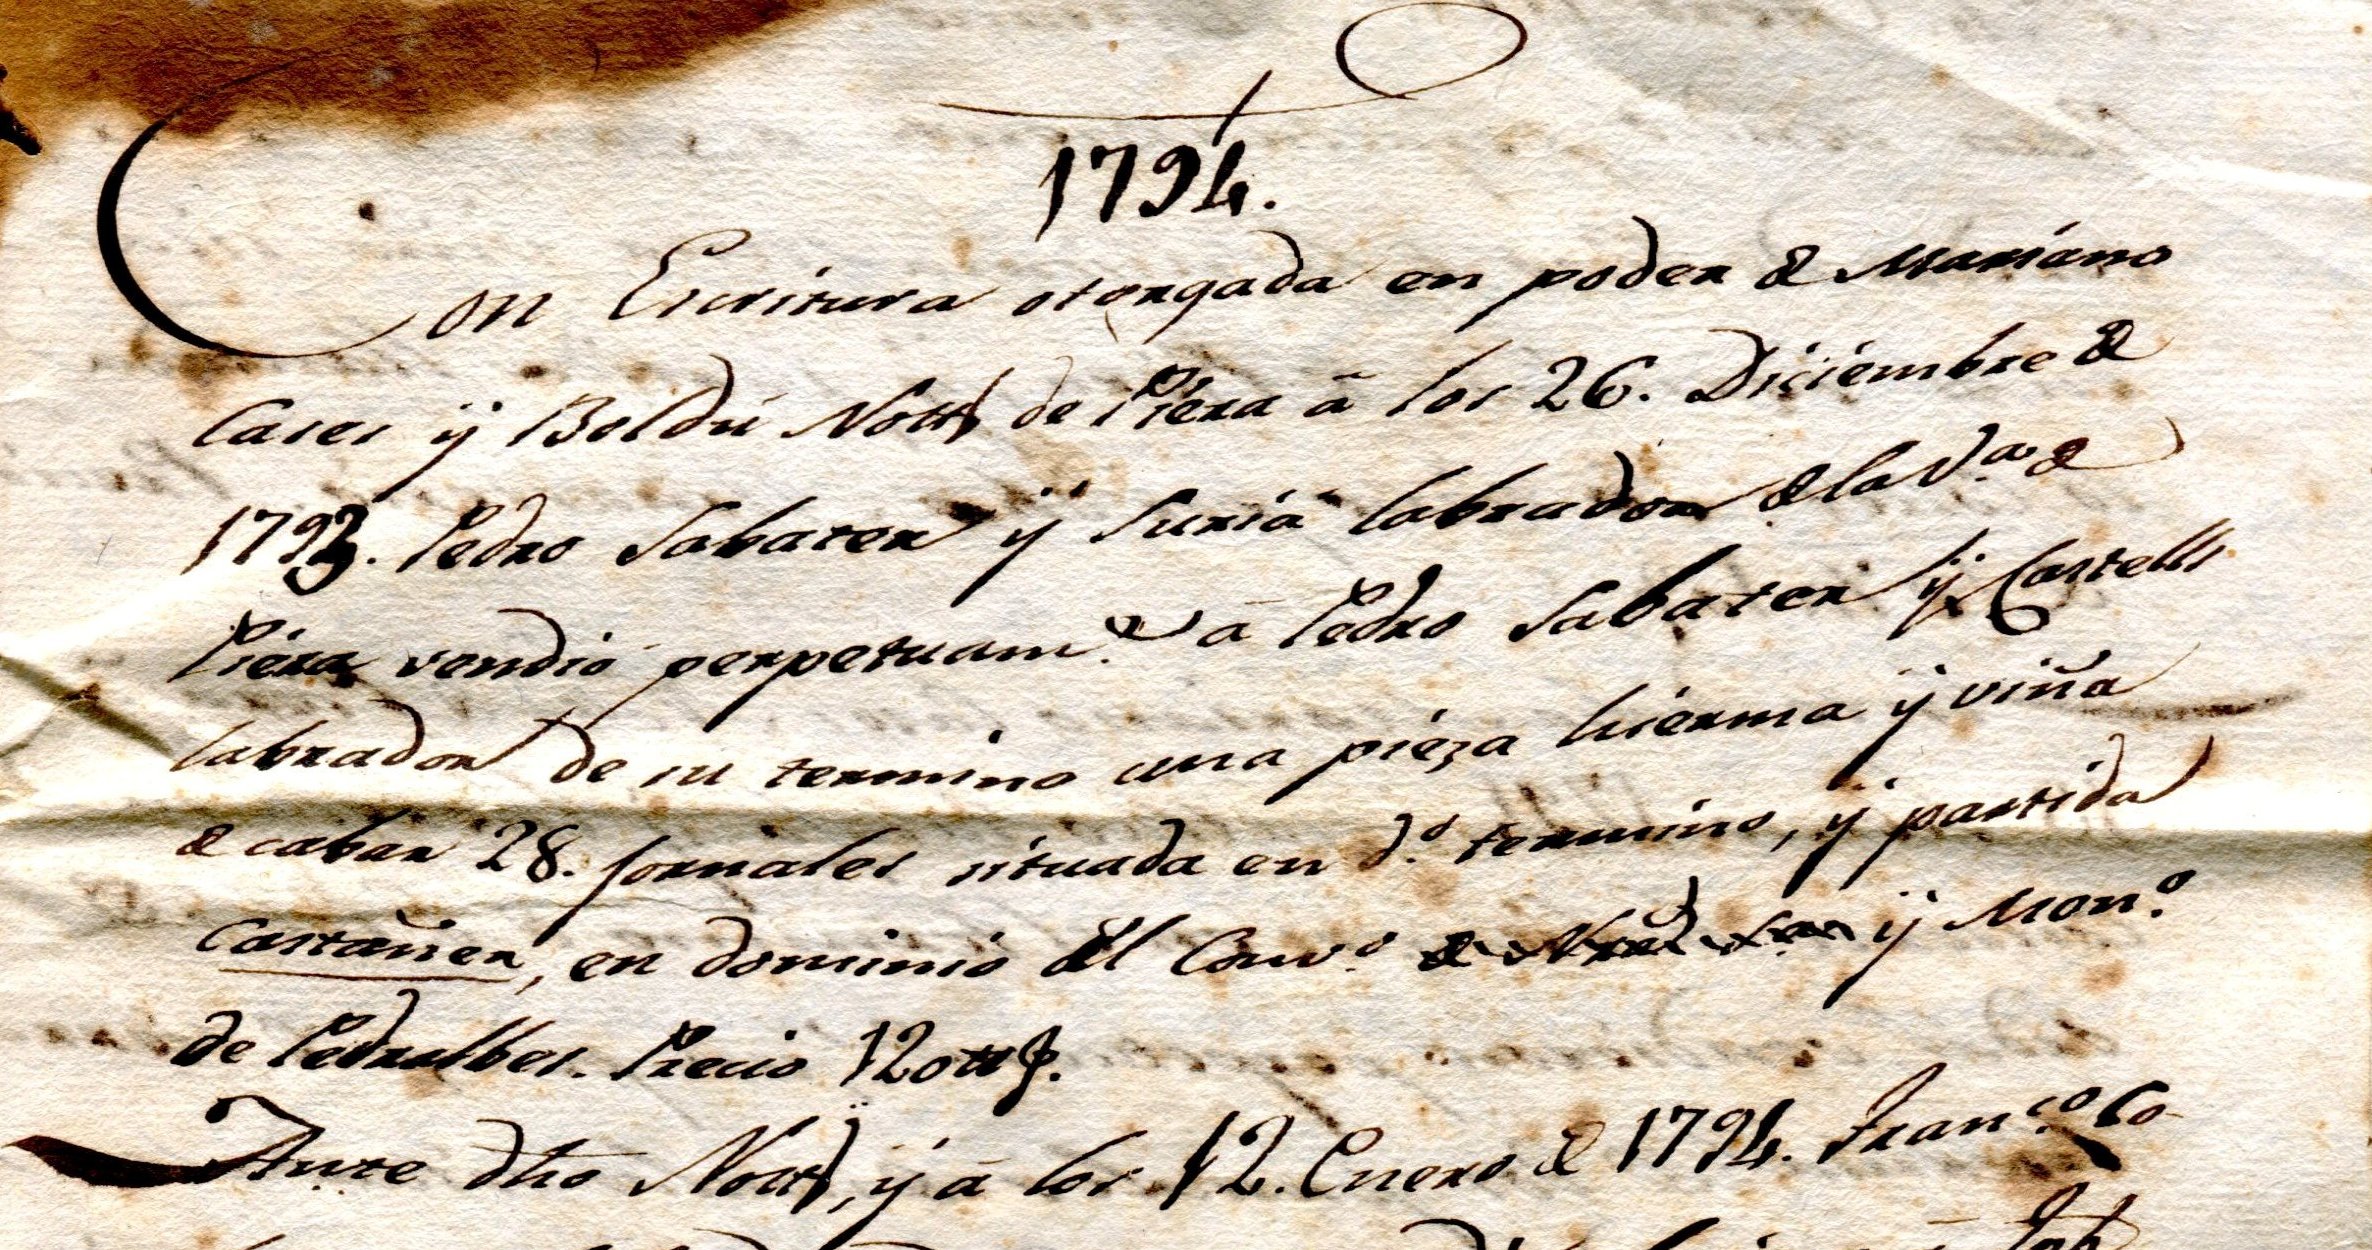 1794.
Con Escritura otorgada en poder de Mariano
Cases y Boldú Nott de Piera â los 26. Diciembre de
1793. Pedro Sabater y Suriá labrador de la V.a de
Piera vendió perpetuam.te â Pedro Sabater y Castells
labrador de su termino una pieza hierma y viña
de cabar 28. jornales situada en d.o termino, y partida
Castañer, en dominio del Conv.o y Mon.o
de Pedralbes. Precio 120tt
Ante dho Nott, y â los 12. Enero de 1794. Fran.co Co-